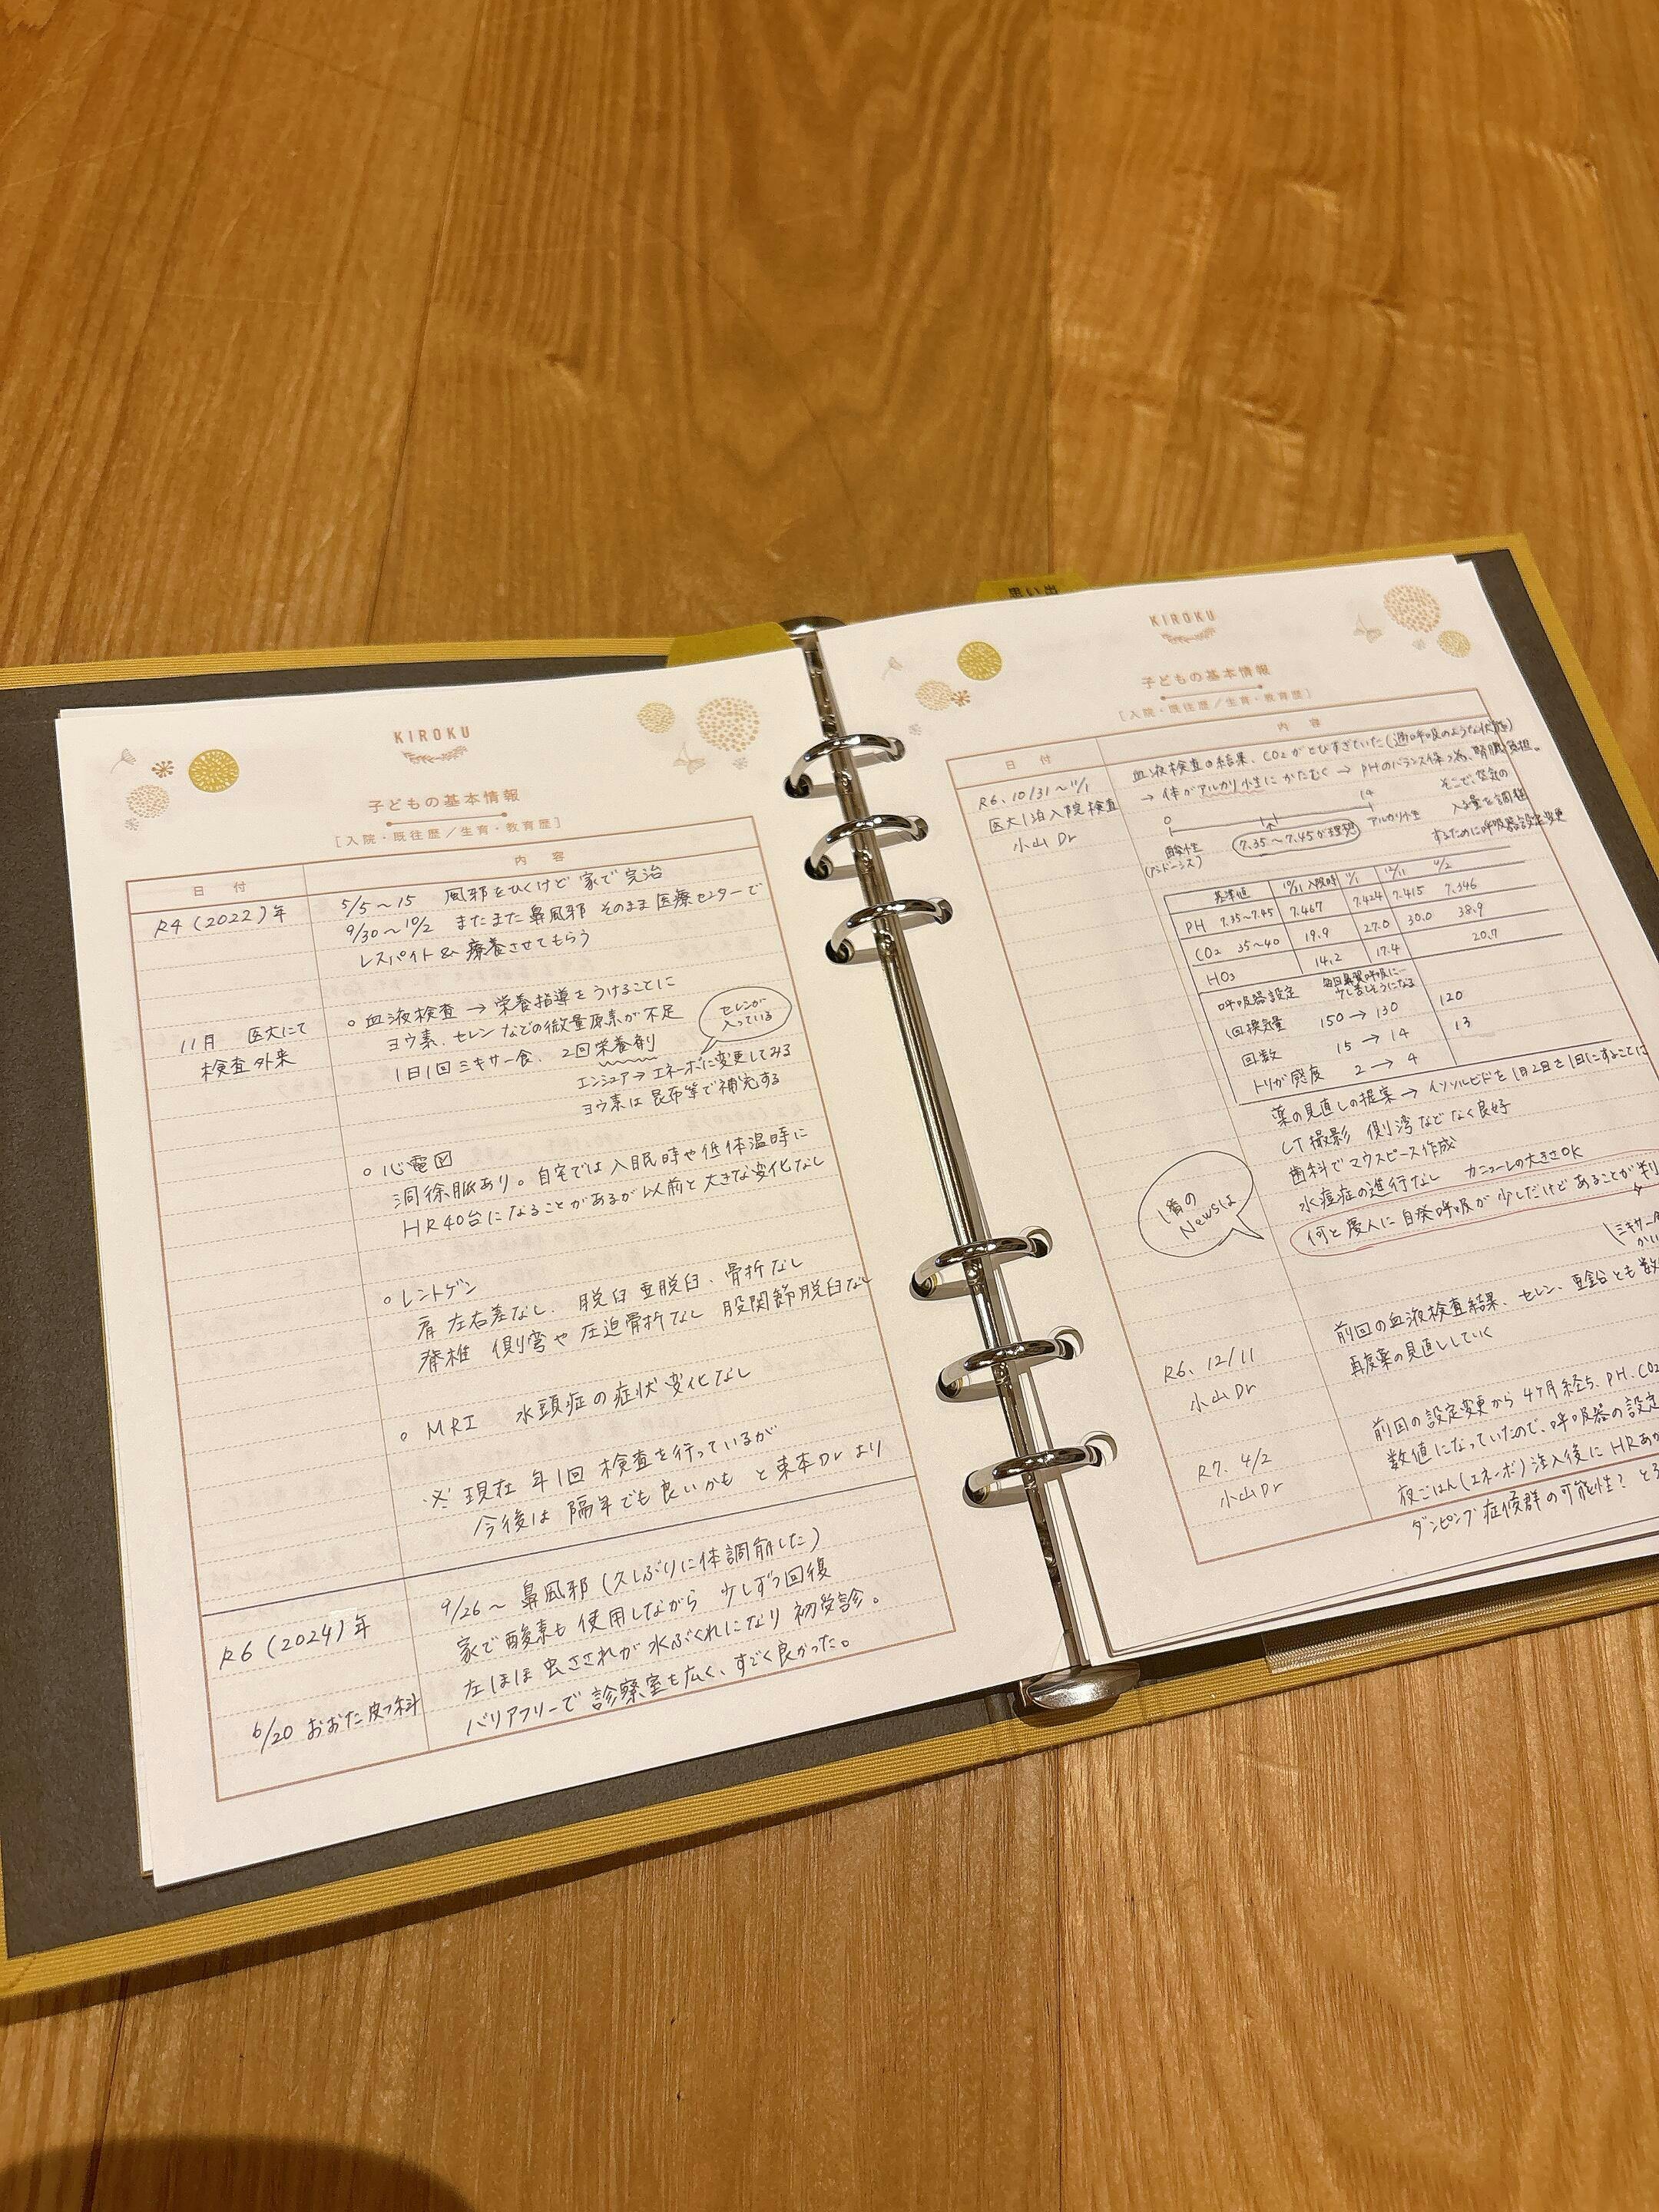 KIROKU
子どもの基本情報
[入院・既往歴／生育・教育歴]
日 付
内 容
R4 (2022)年
5/5～15 風邪をひくけど 家で完治
9/30～10/2 またまた鼻風邪 そのまま医療センターで
レスパイト& 療養させてもらう
11月 医大にて
検査外来
○ 血液検査 → 栄養指導をうけることに
ヨウ素、セレン などの微量原素が不足
1日1回ミキサー食、2回栄養剤
セレンが
入っている
エンシュア→エネーボに変更してみる
ヨウ素は 昆布等で補充する
○ 心電図
洞徐脈あり。自宅では入眠時や低体温時に
HR40台になることがあるが以前と大きな変化なし
○ レントゲン
肩 左右差なし、脱臼 亜脱臼、骨折なし
脊椎 側弯や圧迫骨折なし 股関節脱臼なし
○ MRI 水頭症の症状変化なし
※ 現在 年1回 検査を行っているが
今後は 隔年でも良いかも と東本Drより
R6 (2024)年
9/26～ 鼻風邪 (久しぶりに体調崩した)
家で酸素も使用しながら 少しずつ回復
6/20 おおた皮フ科
左ほほ 虫さされが水ぶくれになり 初受診。
バリアフリーで診察室も広く、すごく良かった。
思い出
KIROKU
子どもの基本情報
[入院・既往歴／生育・教育歴]
日 付
内 容
R6、10/31～11/1
医大1泊入院検査
小山Dr
血液検査の結果、CO2がとびすぎていた(過呼吸のような状態)
→ 体がアルカリ性にかたむく → PHのバランス保つ為、腎臓負担。
0
14
酸性
(アシドーシス)
7.35～7.45が理想
アルカリ性
そこで、空気の
入る量を調整
するために呼吸器設定変更
基準値 10/31 入院時 11/1 12/11 4/2
PH 7.35～7.45 7.467 7.424 7.415 7.346
CO2 35～40 19.9 27.0 30.0 38.9
HO3 14.2 17.4 20.7
呼吸器設定
1回換気量 150 → 130 120
回数 15 → 14 13
トリガ感度 2 → 4
薬の見直しの提案 → イソソルビドを1日2回を1日にすることに
CT撮影 側湾などなく良好
歯科でマウスピース作成
水頭症の進行なし カニューレの大きさOK
1番の
Newsは
何と慶人に自発呼吸が少しだけどあることが判
(ミキサー食
R6、12/11
小山Dr
前回の血液検査結果、セレン、亜鉛とも数
再度薬の見直ししていく
R7、4/2
小山Dr
前回の設定変更から4ヶ月経ち、PH、CO2
数値になっていたので、呼吸器の設定
夜ごはん(エネーボ)注入後にHRあが
ダンピング症候群の可能性？